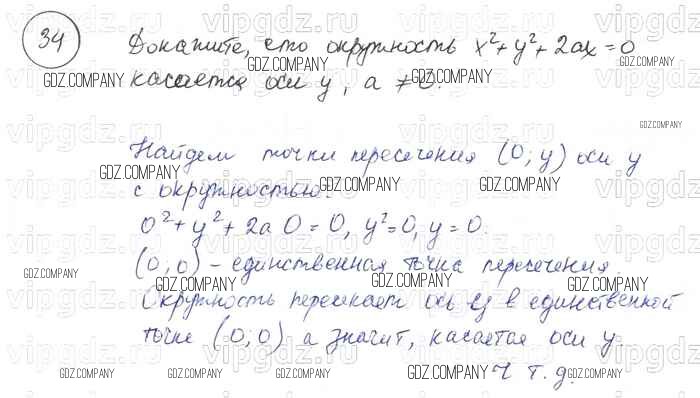 34
Докажите, что окружность x²+y²+2ax=0
касается оси y, a ≠ 0.
Найдем точки пересечения (0; y) оси y
с окружностью:
0²+y²+2a 0=0, y²=0, y=0.
(0,0) - единственная точка пересечения.
Окружность пересекает ось y в единственной
точке (0; 0) а значит, касается оси y.
Ч т.д.
vipgdz.ru
GDZ.COMPANY